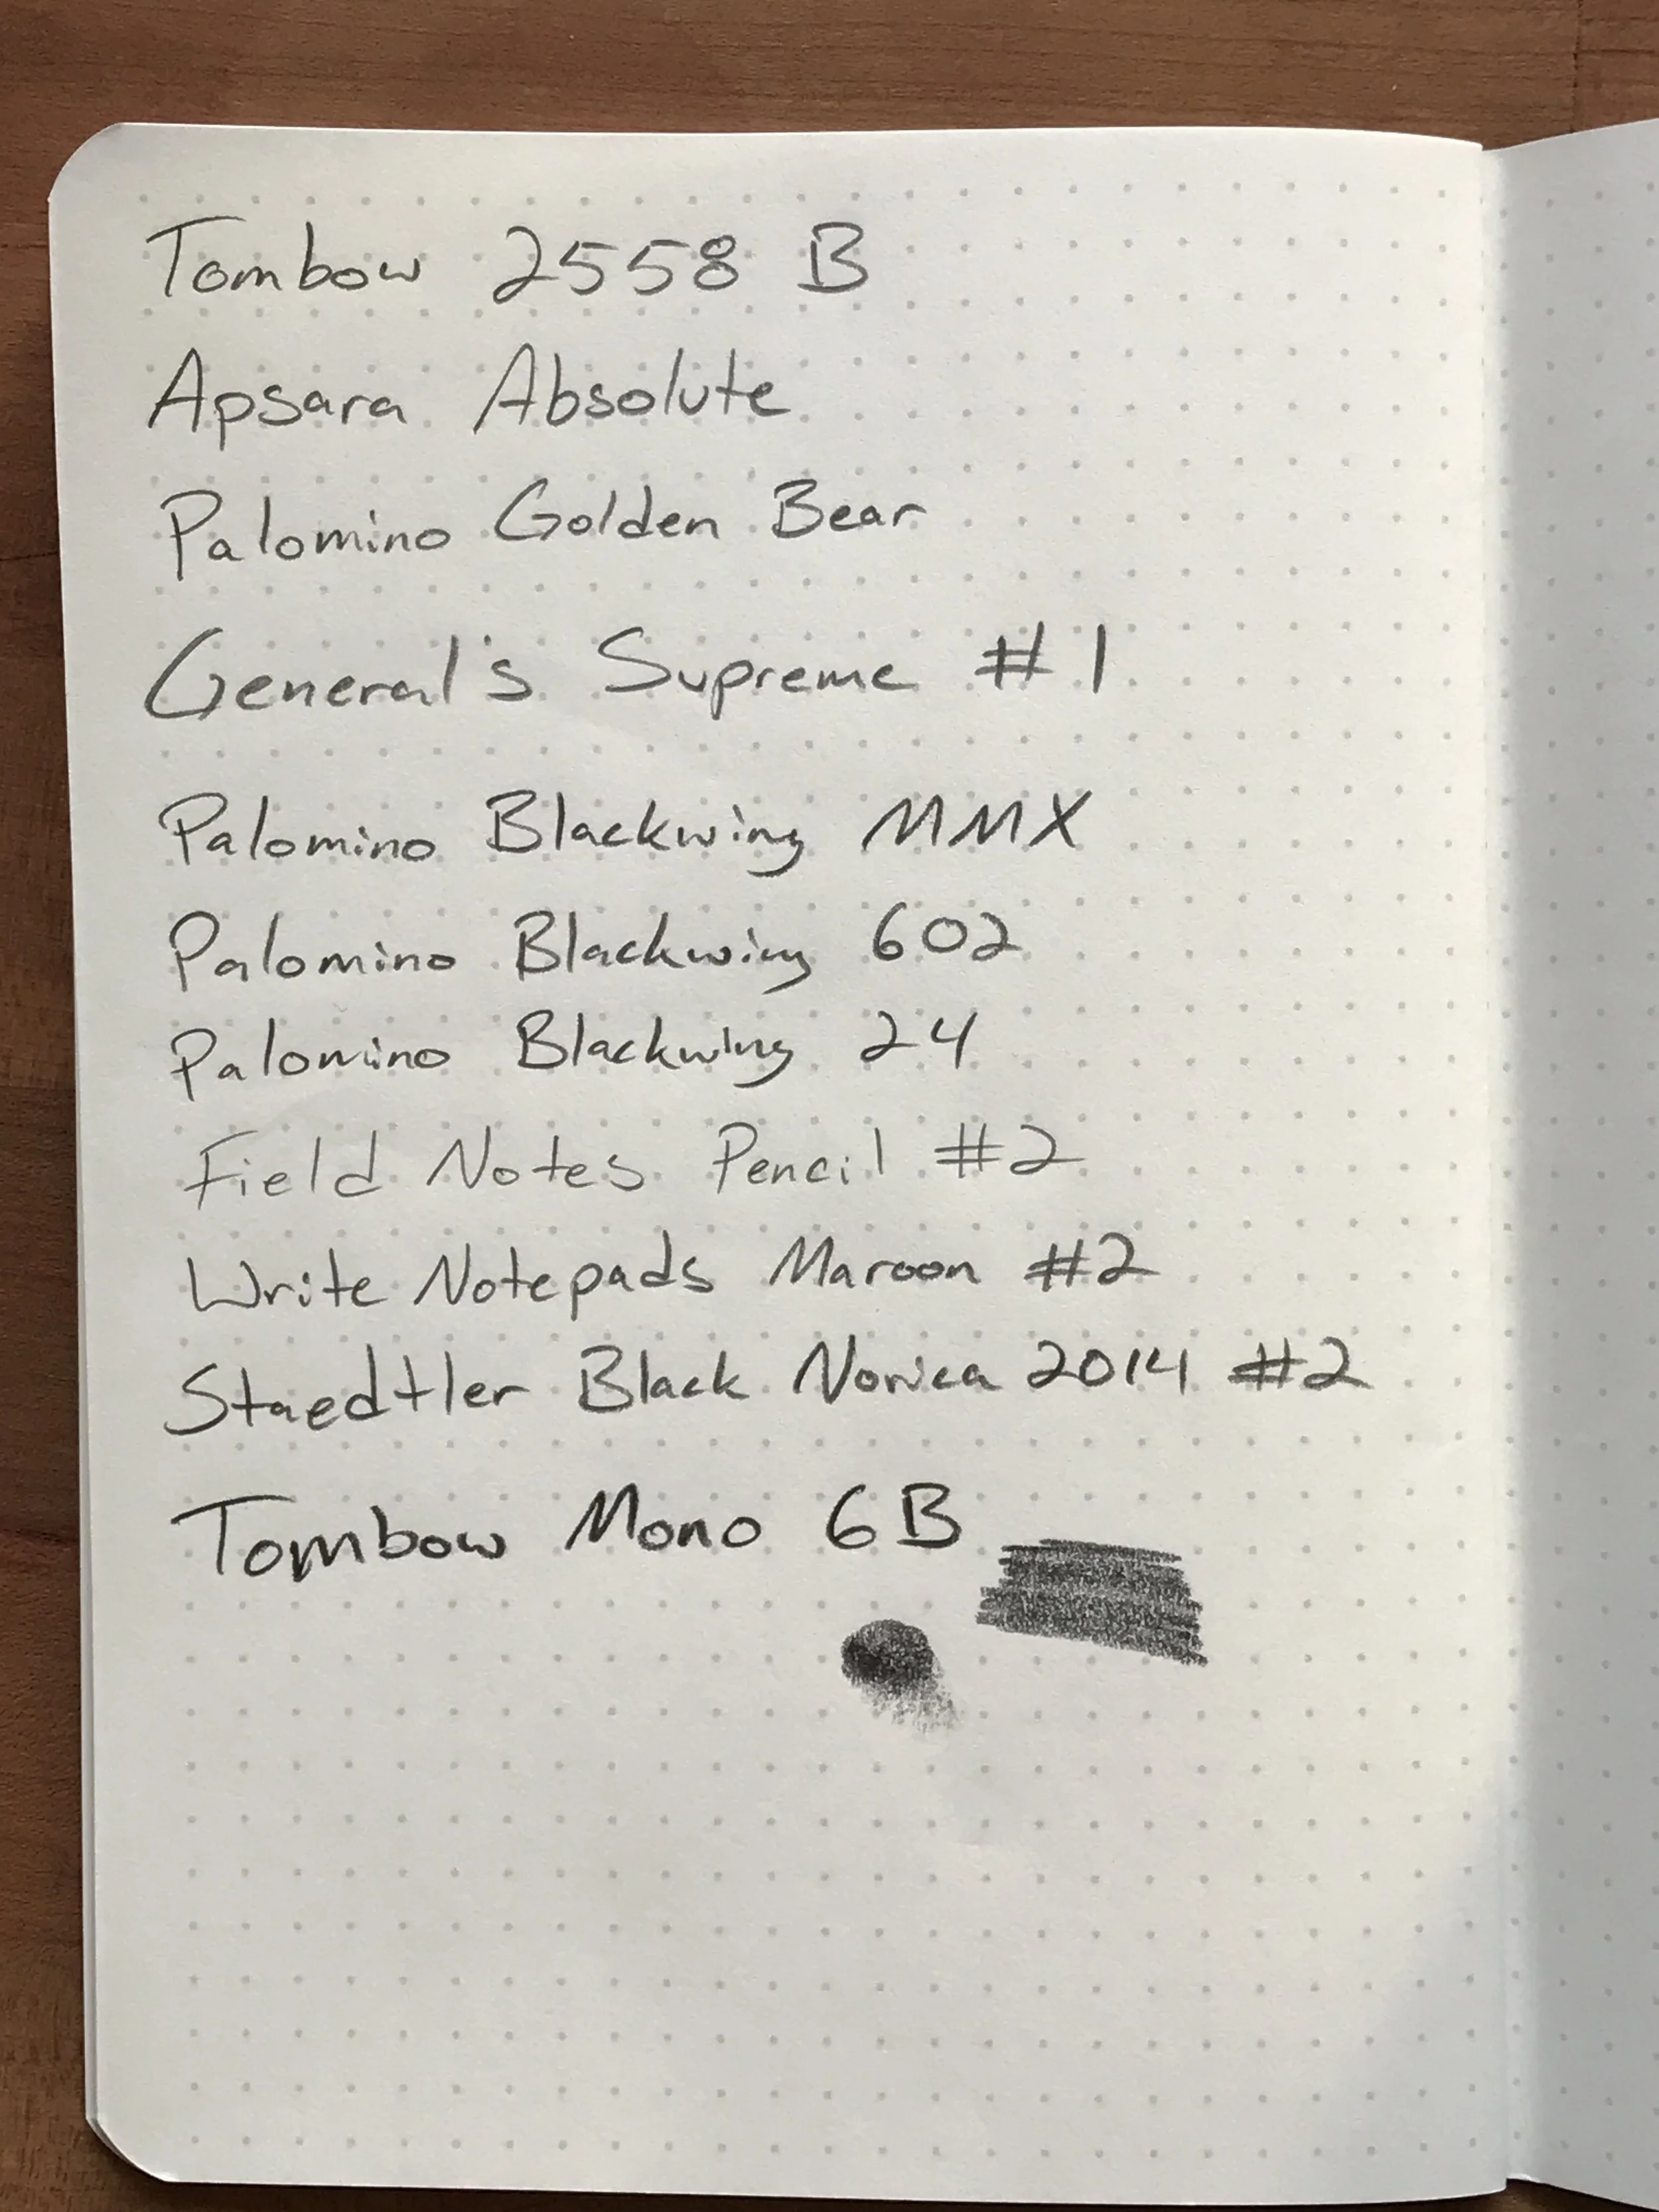 Tombow 2558 B
Apsara Absolute
Palomino Golden Bear
General's Supreme #1
Palomino Blackwing MMX
Palomino Blackwing 602
Palomino Blackwing 24
Field Notes Pencil #2
Write Notepads Maroon #2
Staedtler Black Norica 2014 #2
Tombow Mono 6B